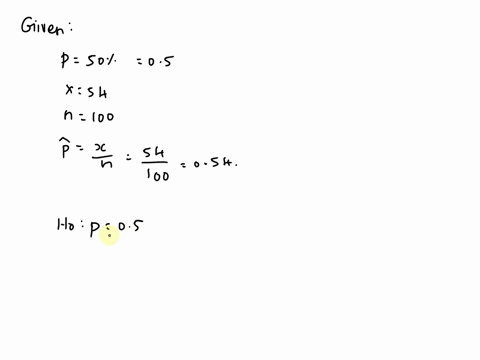 Given:
p = 50% = 0.5
x = 54
n = 100
p̂ = x/n = 54/100 = 0.54.
Ho : p = 0.5